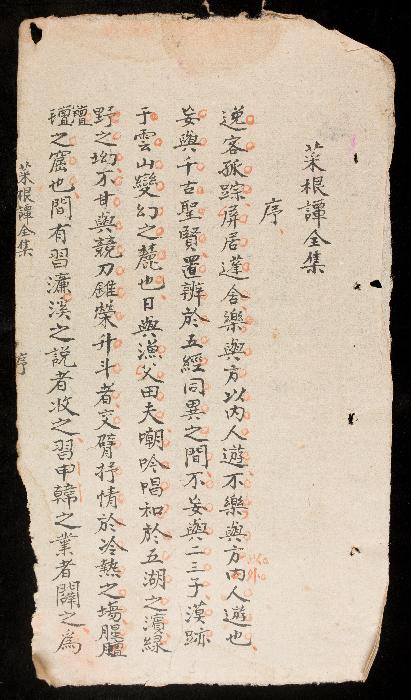 菜根譚全集
序
逸客孤踪屏居蓬舍樂與方以內人遊不樂與方內人遊也
以外
妄與千古聖賢置辨於五經同異之間不妄與二三子漠跡
于雲山變幻之麓也日與漁父田夫嘲吟唱和於五湖之濱緑
野之坳不甘與競刀錐榮升斗者交臂抒情於冷熱之場腥膻
之窟也間有習濂溪之説者收之習申韓之業者闢之為
菜根譚全集 序